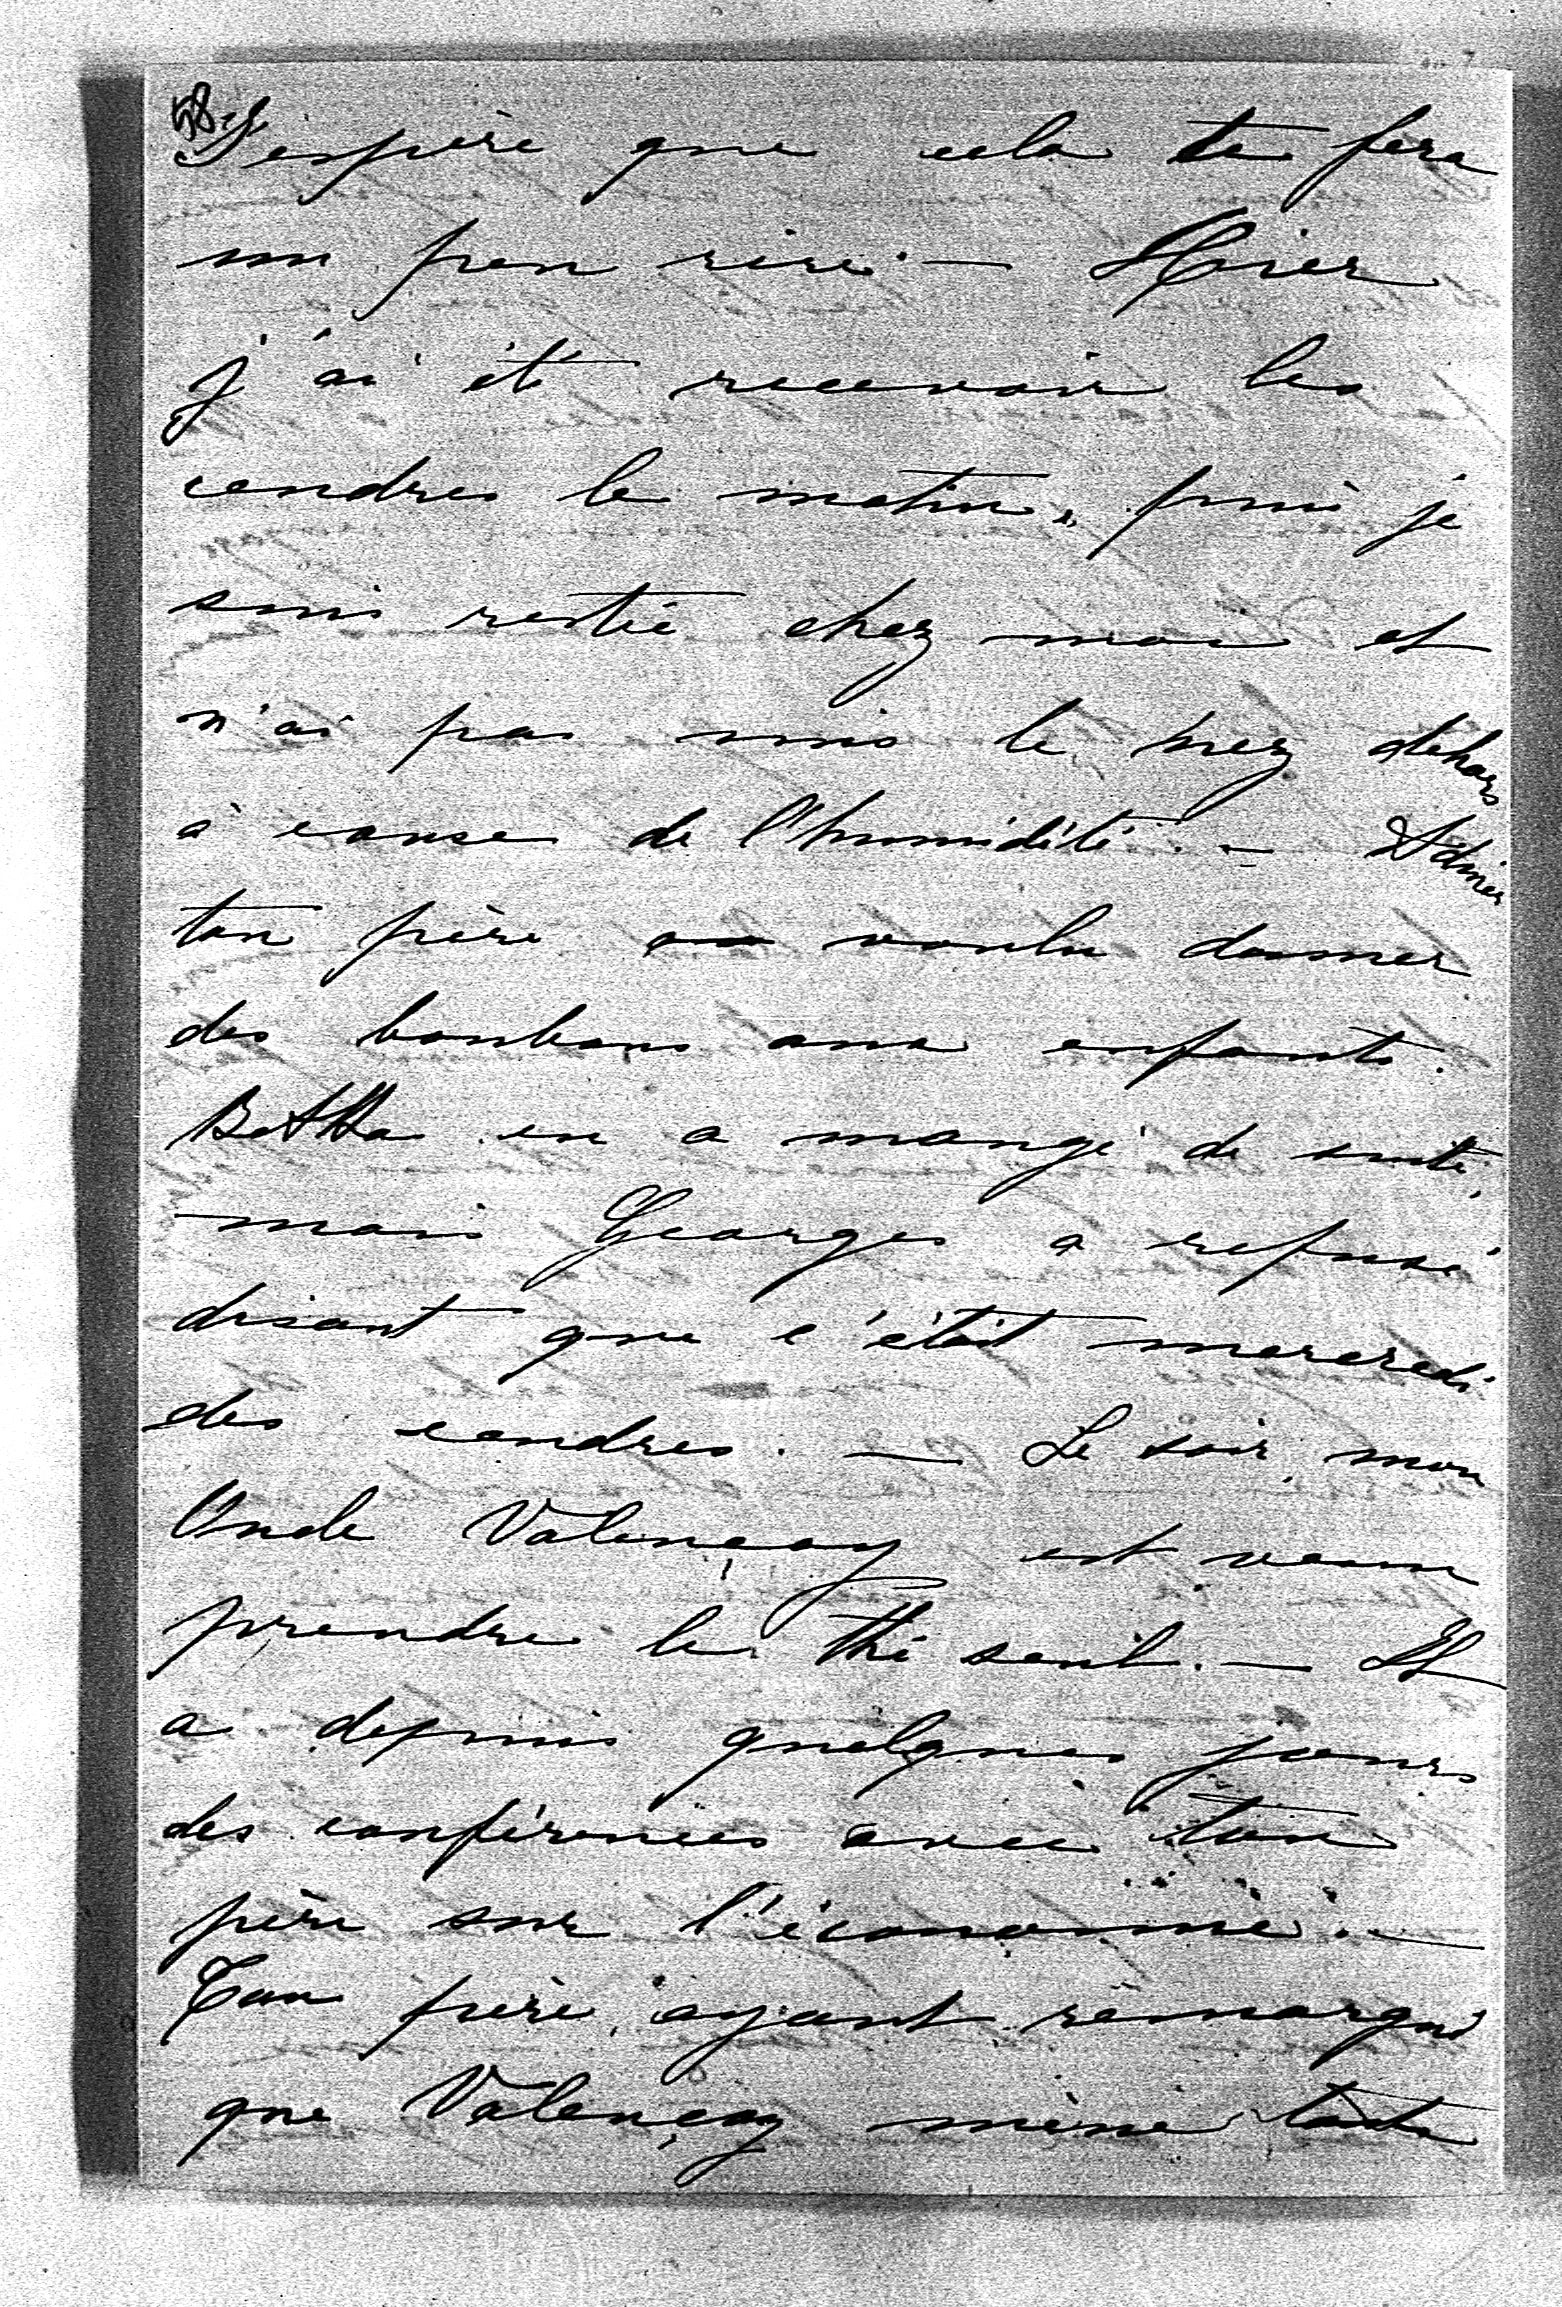 58.
J'espère que cela te fera
un peu rire. — Hier
j'ai été recevoir les
cendres le matin, puis je
suis restée chez moi et
n'ai pas mis le nez dehors
à cause de l'humidité. — A diner
ton père a voulu donner
des bonbons aux enfants.
Bettka en a mangé de suite,
mais Georges a refusé
disant que c'était mercredi
des cendres. — Le soir, mon
Oncle Valençay est venu
prendre le thé seul. — Il
a depuis quelques jours
des conférences avec ton
père sur l'économie. —
Ton père, ayant remarqué
que Valençay mène toute